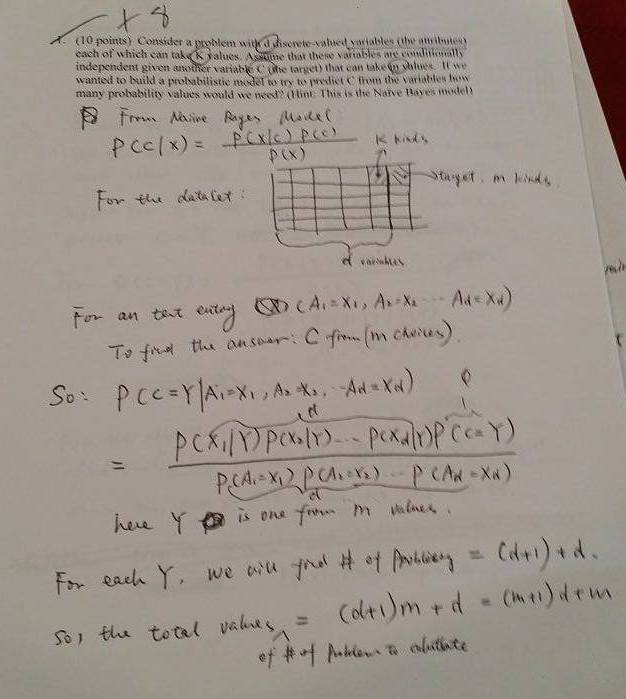 +8
1. (10 points) Consider a problem with d discrete-valued variables (the attributes)
each of which can take K values. Assume that these variables are conditionally
independent given another variable C (the target) that can take m values. If we
wanted to build a probabilistic model to try to predict C from the variables how
many probability values would we need? (Hint: This is the Naïve Bayes model)
From Naive Bayes Model
P(C|X) = P(X|C) P(C) / P(X)
K kinds
For the dataset:
target. m kinds.
d variables
For an test entry (A₁=X₁, A₂=X₂ ... Ad=Xd)
To find the answer: C from (m choices).
So: P(C=Y|A₁=X₁, A₂=X₂, ... Ad=Xd)
d 1
= P(X₁|Y) P(X₂|Y) ... P(Xd|Y) P(C=Y) / P(A₁=X₁) P(A₂=X₂) ... P(Ad=Xd)
d
here Y is one from m values.
For each Y, we will find # of = (d+1)+d.
So, the total values = (d+1)m + d = (m+1)d+m
of # of to calculate